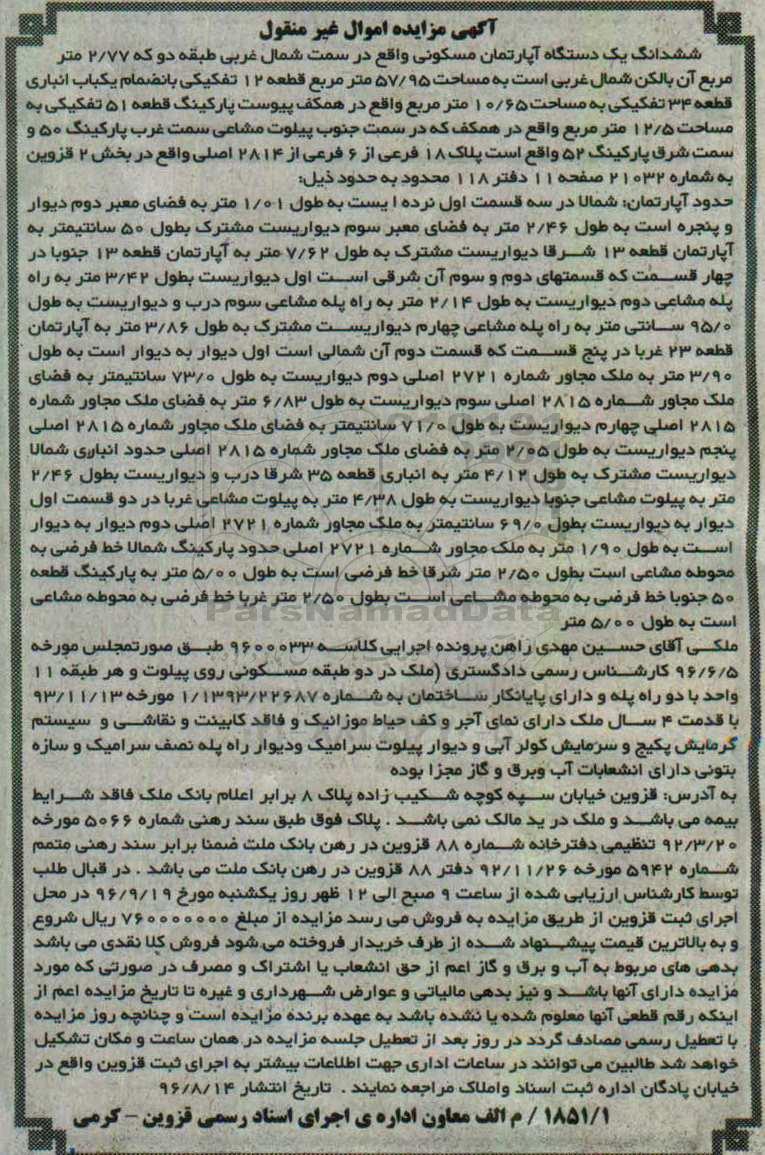 آگهی مزایده اموال غیر منقول
ششدانگ یک دستگاه آپارتمان مسکونی واقع در سمت شمال غربی طبقه دو که ۲/۷۷ متر
مربع آن بالکن شمال غربی است به مساحت ۵۷/۹۵ متر مربع قطعه ۱۲ تفکیکی بانضمام یکباب انباری
قطعه ۳۴ تفکیکی به مساحت ۱۰/۶۵ متر مربع واقع در همکف پیوست پارکینگ قطعه ۵۱ تفکیکی به
مساحت ۱۲/۵ متر مربع واقع در همکف که در سمت جنوب پیلوت مشاعی سمت غرب پارکینگ ۵۰ و
سمت شرق پارکینگ ۵۲ واقع است پلاک ۱۸ فرعی از ۶ فرعی از ۲۸۱۴ اصلی واقع در بخش ۲ قزوین
به شماره ۲۱۰۳۲ صفحه ۱۱ دفتر ۱۱۸ محدود به حدود ذیل:
حدود آپارتمان: شمالا در سه قسمت اول نرده ایست به طول ۱/۰۱ متر به فضای معبر دوم دیوار
و پنجره است به طول ۲/۴۶ متر به فضای معبر سوم دیواریست مشترک بطول ۵۰ سانتیمتر به
آپارتمان قطعه ۱۳ شرقا دیواریست مشترک به طول ۷/۶۲ متر به آپارتمان قطعه ۱۳ جنوبا در
چهار قسمت که قسمتهای دوم و سوم آن شرقی است اول دیواریست بطول ۳/۴۲ متر به راه
پله مشاعی دوم دیواریست به طول ۲/۱۴ متر به راه پله مشاعی سوم درب و دیواریست به طول
۹۵/۰ سانتی متر به راه پله مشاعی چهارم دیواریست مشترک به طول ۳/۸۶ متر به آپارتمان
قطعه ۲۳ غربا در پنج قسمت که قسمت دوم آن شمالی است اول دیوار به دیوار است به طول
۳/۹۰ متر به ملک مجاور شماره ۲۷۲۱ اصلی دوم دیواریست به طول ۷۳/۰ سانتیمتر به فضای
ملک مجاور شماره ۲۸۱۵ اصلی سوم دیواریست به طول ۶/۸۳ متر به فضای ملک مجاور شماره
۲۸۱۵ اصلی چهارم دیواریست به طول ۷۱/۰ سانتیمتر به فضای ملک مجاور شماره ۲۸۱۵ اصلی
پنجم دیواریست به طول ۲/۰۵ متر به فضای ملک مجاور شماره ۲۸۱۵ اصلی حدود انباری شمالا
دیواریست مشترک به طول ۴/۱۲ متر به انباری قطعه ۳۵ شرقا درب و دیواریست بطول ۲/۴۶
متر به پیلوت مشاعی جنوبا دیواریست به طول ۴/۳۸ متر به پیلوت مشاعی غربا در دو قسمت اول
دیوار به دیواریست بطول ۶۹/۰ سانتیمتر به ملک مجاور شماره ۲۷۲۱ اصلی دوم دیوار به دیوار
است به طول ۱/۹۰ متر به ملک مجاور شماره ۲۷۲۱ اصلی حدود پارکینگ شمالا خط فرضی به
محوطه مشاعی است بطول ۲/۵۰ متر شرقا خط فرضی است به طول ۵/۰۰ متر به پارکینگ قطعه
۵۰ جنوبا خط فرضی به محوطه مشاعی است بطول ۲/۵۰ متر غربا خط فرضی به محوطه مشاعی
است به طول ۵/۰۰ متر
ParsNamadData
ملکی آقای حسین مهدی راهن پرونده اجرایی کلاسه ۹۶۰۰۰۳۳ طبق صورتمجلس مورخه
۹۶/۶/۵ کارشناس رسمی دادگستری (ملک در دو طبقه مسکونی روی پیلوت و هر طبقه ۱۱
واحد با دو راه پله و دارای پایانکار ساختمان به شماره ۱/۱۳۹۳/۲۲۶۸۷ مورخه ۹۳/۱۱/۱۳
با قدمت ۴ سال ملک دارای نمای آجر و کف حیاط موزائیک و فاقد کابینت و نقاشی و سیستم
گرمایش پکیج و سرمایش کولر آبی و دیوار پیلوت سرامیک ودیوار راه پله نصف سرامیک و سازه
بتونی دارای انشعابات آب وبرق و گاز مجزا بوده
به آدرس: قزوین خیابان سپه کوچه شکیب زاده پلاک ۸ برابر اعلام بانک ملک فاقد شرایط
بیمه می باشد و ملک در ید مالک نمی باشد . پلاک فوق طبق سند رهنی شماره ۵۰۶۶ مورخه
۹۲/۳/۲۰ تنظیمی دفترخانه شماره ۸۸ قزوین در رهن بانک ملت ضمنا برابر سند رهنی متمم
شماره ۵۹۴۲ مورخه ۹۲/۱۱/۲۶ دفتر ۸۸ قزوین در رهن بانک ملت می باشد . در قبال طلب
توسط کارشناس ارزیابی شده از ساعت ۹ صبح الی ۱۲ ظهر روز یکشنبه مورخ ۹۶/۹/۱۹ در محل
اجرای ثبت قزوین از طریق مزایده به فروش می رسد مزایده از مبلغ ۷۶۰۰۰۰۰۰۰ ریال شروع
و به بالاترین قیمت پیشنهاد شده از طرف خریدار فروخته می شود فروش کلا نقدی می باشد
بدهی های مربوط به آب و برق و گاز اعم از حق انشعاب یا اشتراک و مصرف در صورتی که مورد
مزایده دارای آنها باشد و نیز بدهی مالیاتی و عوارض شهرداری و غیره تا تاریخ مزایده اعم از
اینکه رقم قطعی آنها معلوم شده یا نشده باشد به عهده برنده مزایده است و چنانچه روز مزایده
با تعطیل رسمی مصادف گردد در روز بعد از تعطیل جلسه مزایده در همان ساعت و مکان تشکیل
خواهد شد طالبین می توانند در ساعات اداری جهت اطلاعات بیشتر به اجرای ثبت قزوین واقع در
خیابان پادگان اداره ثبت اسناد واملاک مراجعه نمایند . تاریخ انتشار ۹۶/۸/۱۴
۱۸۵۱/۱ / م الف معاون اداره ی اجرای اسناد رسمی قزوین - کرمی